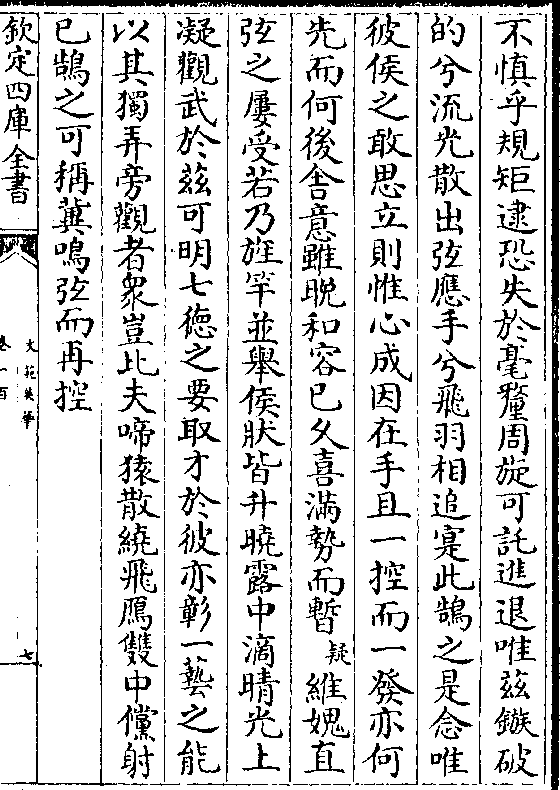 不慎乎規矩逮恐失於毫釐周旋可託進退唯兹鏃破
的兮流光散出弦應手兮飛羽相追寔此鵠之是念唯
彼侯之敢思立則惟心成因在手且一控而一發亦何
先而何後舎意雖晩和容已久喜滿勢而暫疑維媿直
弦之屢受若乃旌竿並舉侯狀皆升曉露中滴晴光上
凝觀武於兹可明七德之要取才於彼亦彰一藝之能
以其獨弄旁觀者衆豈比夫啼猿散繞飛鴈雙中儻射
已鵠之可稱冀鳴弦而再控
欽定四庫全書
文苑英華
卷一百
七